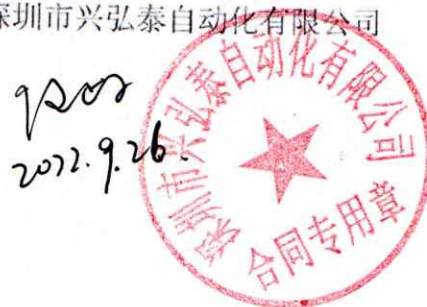 深圳市兴弘泰自动化有限公司
2022.9.26.
深圳市兴弘泰自动化有限公司
合同专用章